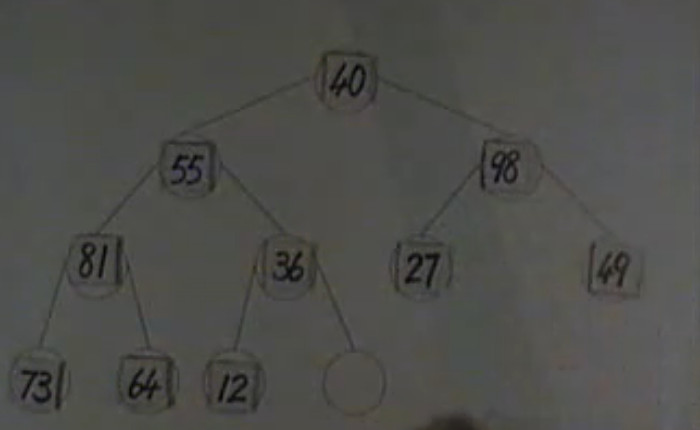 40
55 98
81 36 27 49
73 64 12